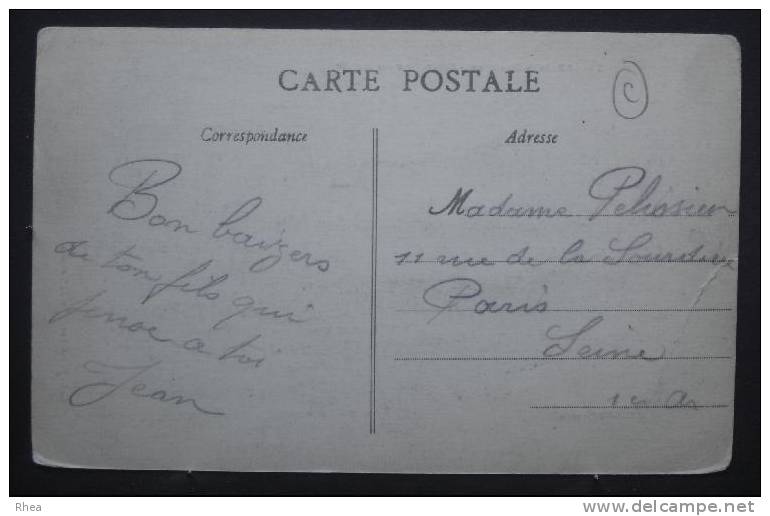 CARTE POSTALE
C
Correspondance
Adresse
Bon baizers
de ton fils qui
pense a toi
Jean
Madame
11 rue de la Sourdière
Paris
Seine
1er Ar
Rhea
www.delcampe.net